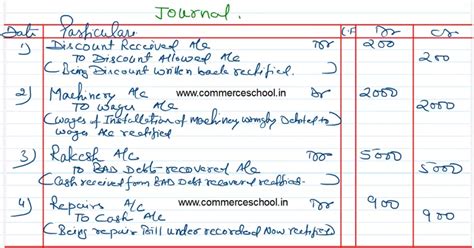 Journal.
Date Particulars L.F Dr Cr
1) Discount Received A/c Dr 200
To Discount Allowed A/c 200
(Being Discount written back rectified.
2) Machinery A/c www.commerceschool.in Dr 2000
To wages A/c 2000
(wages of Installation of Machinery wrongly Debited to
wages A/c rectified
3) Rakesh A/c Dr 5000
To BAD Debts recovered A/c 5000
(Cash received from BAD Debt recovered rectified.
4) Repairs A/c www.commerceschool.in Dr 900
To Cash A/c 900
(Being repair Bill under recorded Now rectified)